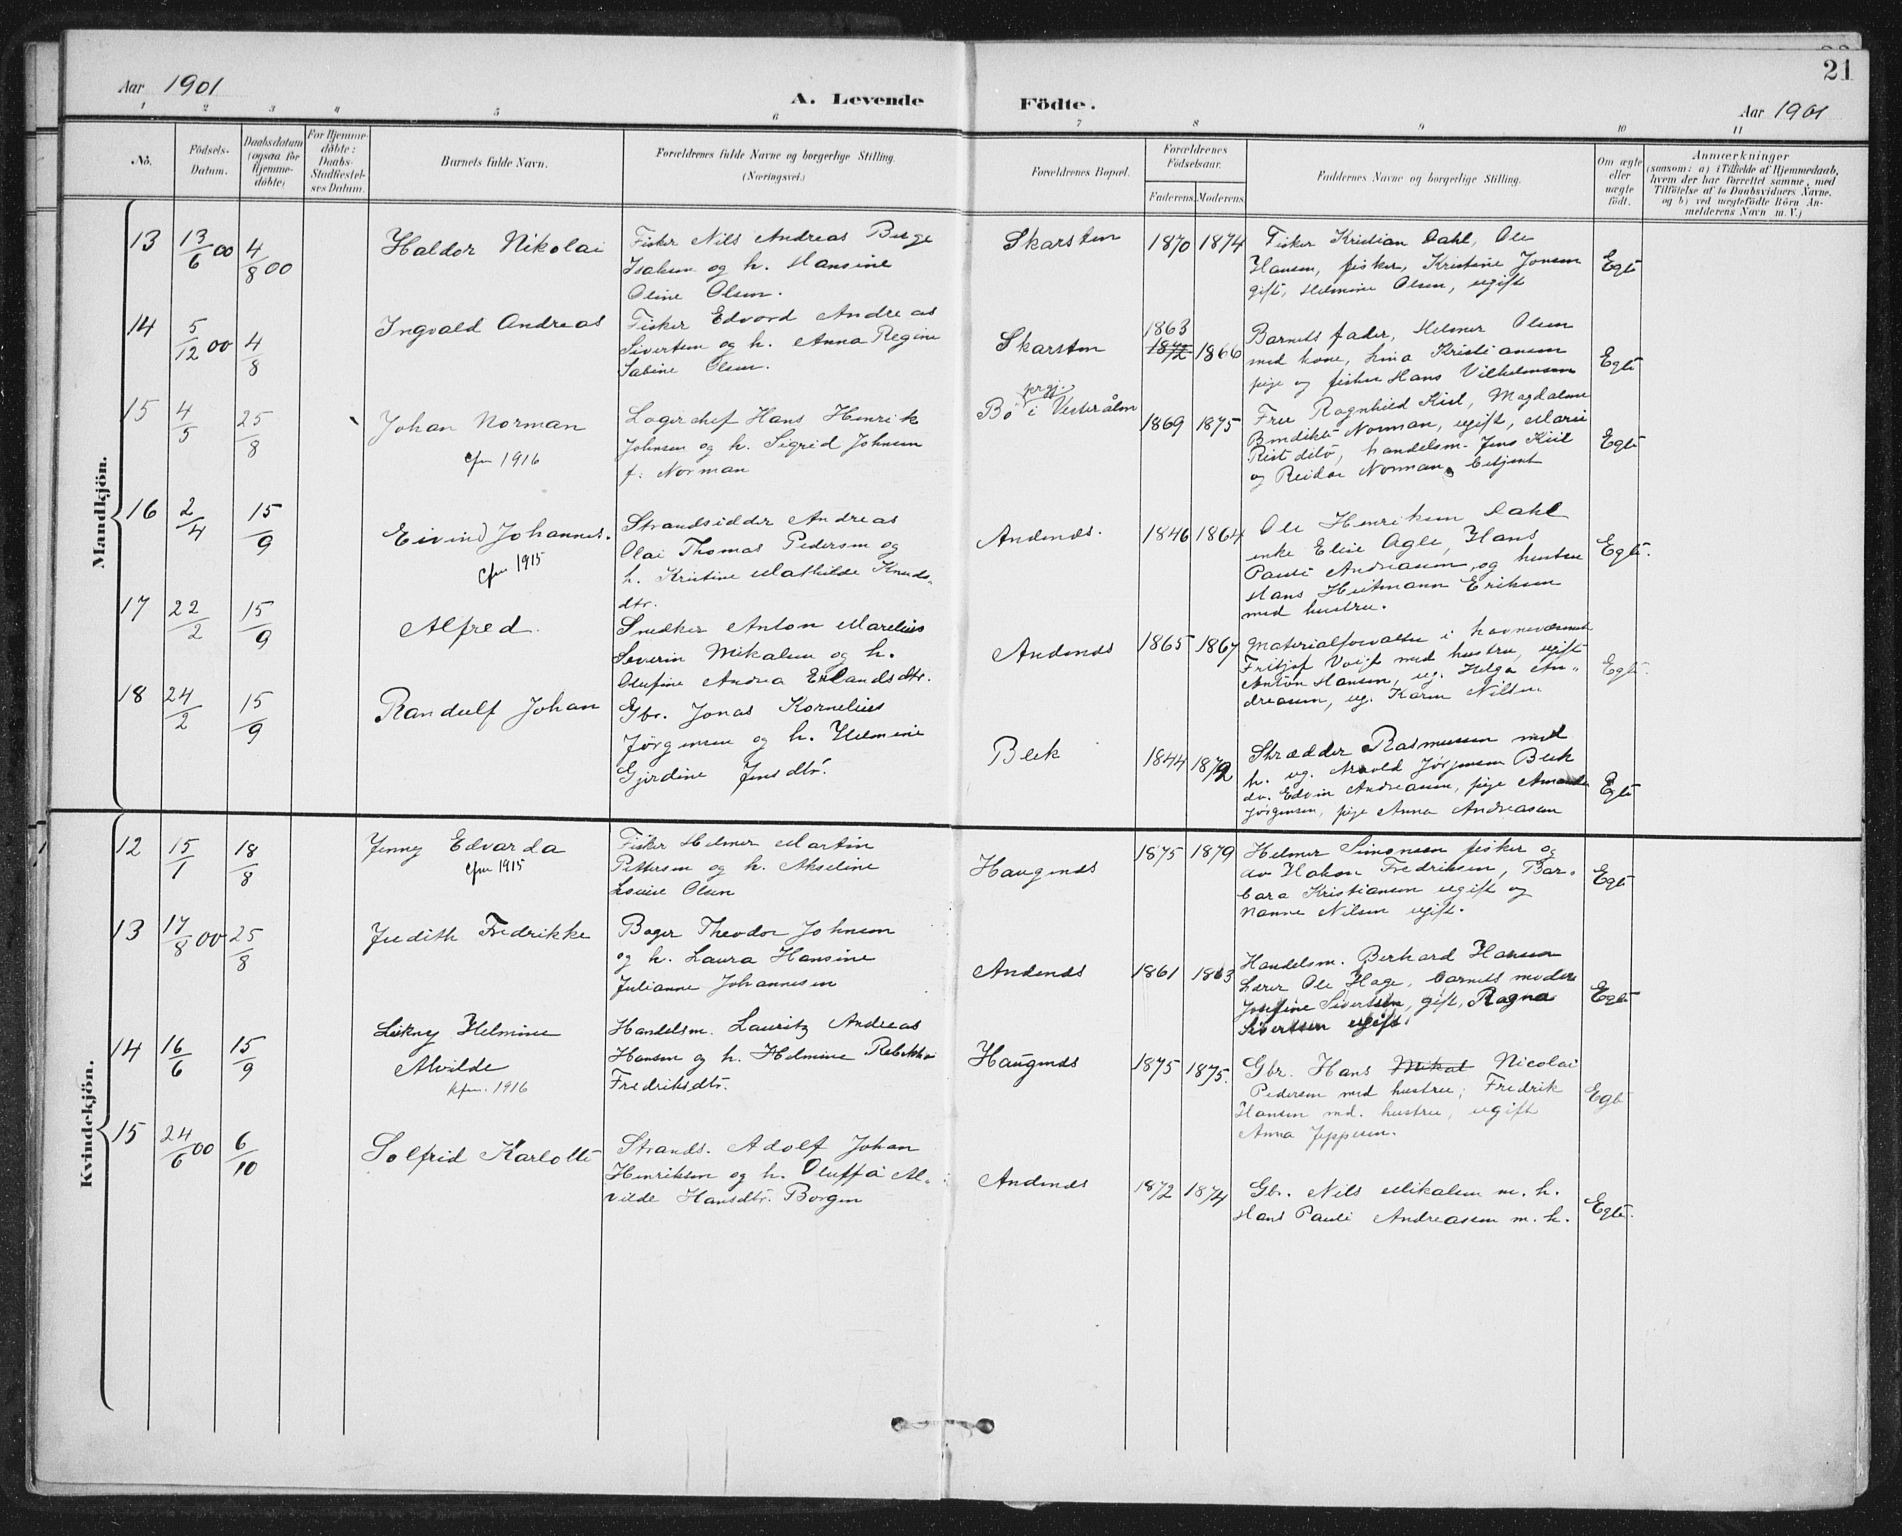 21
Aar 1901
A. Levende Födte.
Aar 1901
1 2 3 4 5 6 7 8 9 10 11
No.
Födsels-
Datum.
Daabsdatum
(ogsaa for
Hjemme-
döbte)
For Hjemme-
döbte:
Daabs-
Stadfæstel-
ses Datum.
Barnets fulde Navn.
Forældrenes fulde Navne og borgerlige Stilling.
(Næringsvei.)
Forældrenes Bopæl.
Forældrenes
Födselsaar.
Faderens. Moderens.
Faddernes Navne og borgerlige Stilling.
Om ægte
eller
uægte
födt.
Anmærkninger
(saasom: a) i Tilfælde af Hjemmedaab,
hvem der har forrettet samme, med
Tilföielse af to Daabsvidners Navne.
og b) ved uægtefödte Börn An-
melderens Navn m. V.)
Mandkjön.
13 13/6 00 4/8 00 Haldor Nikolai
Fisker Nils Andreas Berge
Isaksen og h. Hansine
Oline Olsen.
Skarsten 1870 1874
Fisker Kristian Dahl, Ole
Hansen, fisker, Kristine Jonsen
gift, Helmine Olsen, ugift
Egte
14 5/12 00 4/8 Ingvald Andreas
Fisker Edvard Andreas
Sivertsen og h. Anna Regine
Sabine Olsen.
Skarsten 1863 1872 1866
Barnets fader, Helmer Olsen
med kone, Lina Kristiansen
pige og fisker Hans Vilhelmsen
Egte
15 4/5 25/8 Johan Norman
Cfm 1916
Lagerchef Hans Henrik
Johnsen og h. Sigrid Johnsen
f. Norman
prgj.
Bö i Vesterålen 1869 1875
Fru Ragnhild Kiil, Magdalene
Bendikte Norman, ugift, Marie
Rist ditö, handelsm. Jens Kiil
og Reidar Norman, betjent
Egte
16 2/4 15/9 Eivind Johannes.
Cfm 1915
Strandsidder Andreas
Olai Thomas Pedersen og
h. Kristine Mathilde Knuds-
dtr.
Andenes. 1846 1864
Ole Henriksen Dahl
enke Elise Agle, Hans
Pauli Andreasen, og hustru
Hans Heitmann Eriksen
med hustru.
Egte.
17 22/2 15/9 Alfred.
Snedker Anton Marelius
Severin Mikalsen og h.
Olufine Andrea Erlandsdtr.
Andenes 1865 1867
Materialforvalter i havnevæsenet
Fritjof Voigt med hustru, ugift
Anton Hansen, ug. Helga An-
dreasen, ug. Karen Nilsen.
Egte
18 24/2 15/9 Randulf Johan
Gbr. Jonas Kornelius
Jørgensen og h. Helmine
Gjerdine Jensdtr.
Bleik 1844 1872
Skrædder Rasmussen med
h. ug. Arnold Jørgensen Bleik
do. Edvin Andreasen, pige Amanda
Jørgensen, pige Anna Andreasen
Egte
Kvindekjön.
12 15/1 18/8 Jenny Edvarda
Cfm 1915
Fisker Helmer Martin
Pettersen og h. Akseline
Lovise Olsen
Haugnes 1875 1879
Helmer Simonsen fisker og
do Hakon Fredriksen, Bar-
bara Kristiansen ugift og
Nanna Nilsen ugift.
Egte
13 17/8 00 25/8 Judith Fredrikke
Bager Theodor Johnsen
og h. Laura Hansine
Julianne Johannesen
Andenes 1861 1863
Handelsm. Berhard Hansen
Lærer Ole Hage, barnets moder
Josefine Sivertsen, gift, Ragna
Sivertsen ugift.
Egte
14 16/6 15/9 Helmine
Alvilde
kfm. 1916
Handelsm. Lauritz Andreas
Hansen og h. Helmine Rebekka
Fredriksdtr.
Haugnes 1875 1875.
Gbr. Hans Mikal Nicolai
Pedersen med hustru, Fredrik
Hansen md. hustru, ugift
Anna Jeppesen.
Egte
15 24/6 00 6/10 Solfrid Karlotte
Strands. Adolf Johan
Henriksen og h. Oluffa Al-
vilde Hansdtr. Borgen
Andenes 1872 1874
Gbr. Nils Mikalsen m. h.
Hans Pauli Andreassen m. h.
Egte.